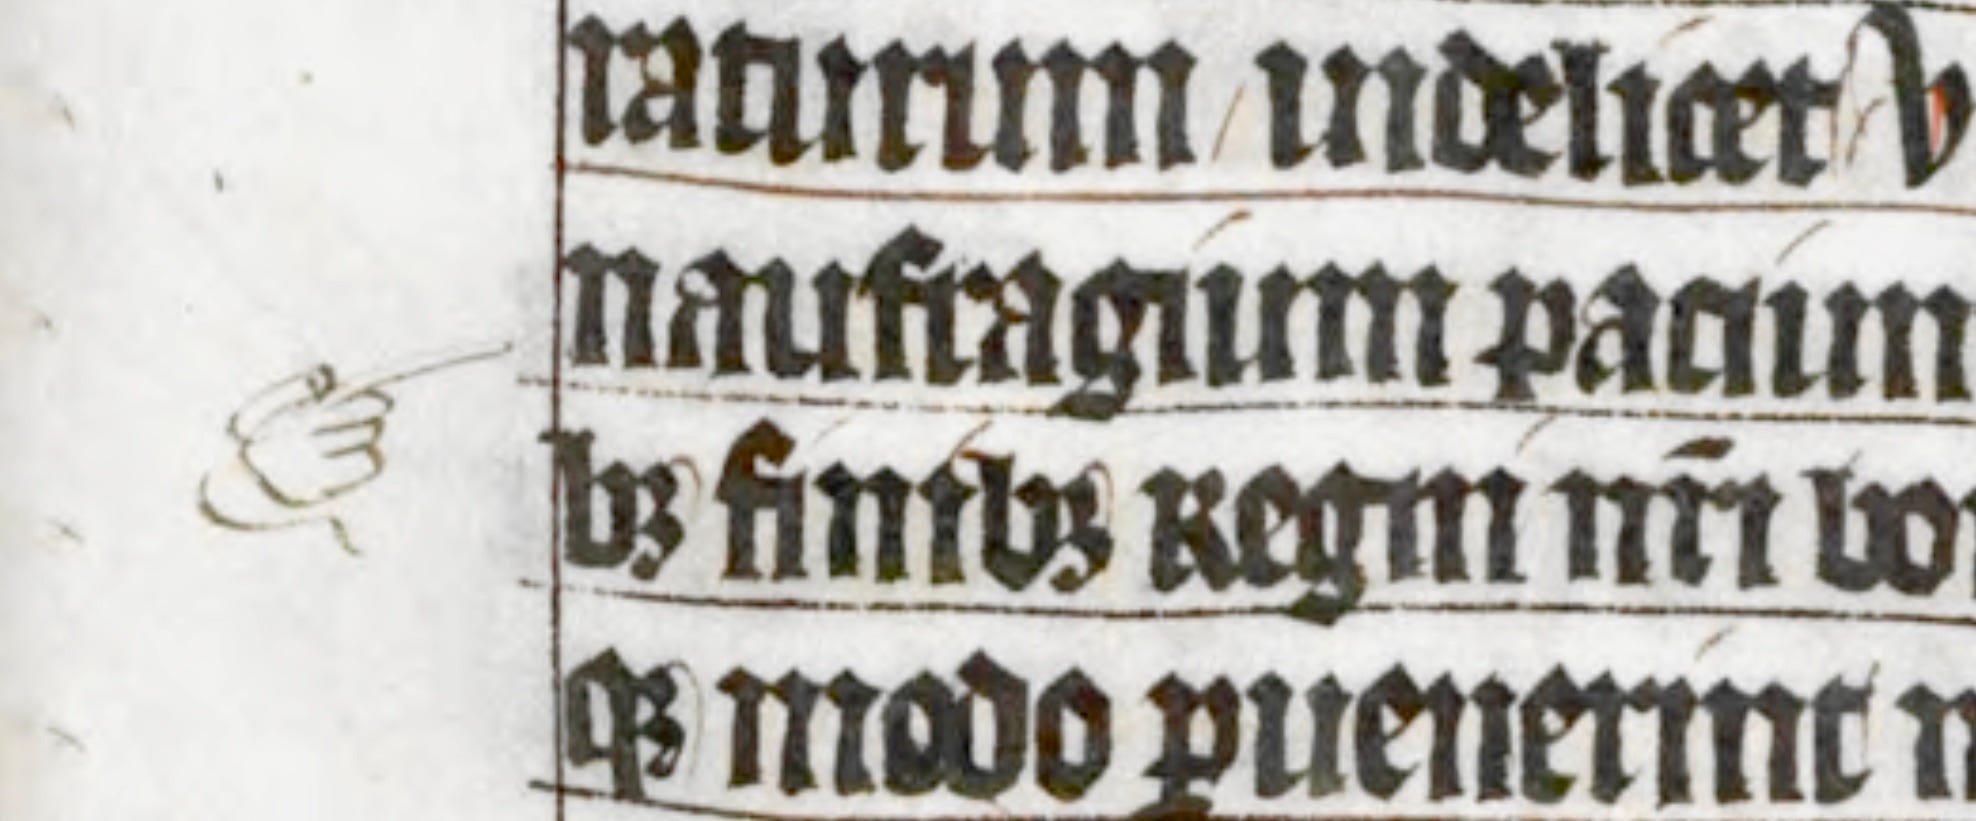 raturum / indelicet V
naufragium paciun
bꝫ finibꝫ Regni nr̄i bo
qꝫ modo ꝑuenerint n